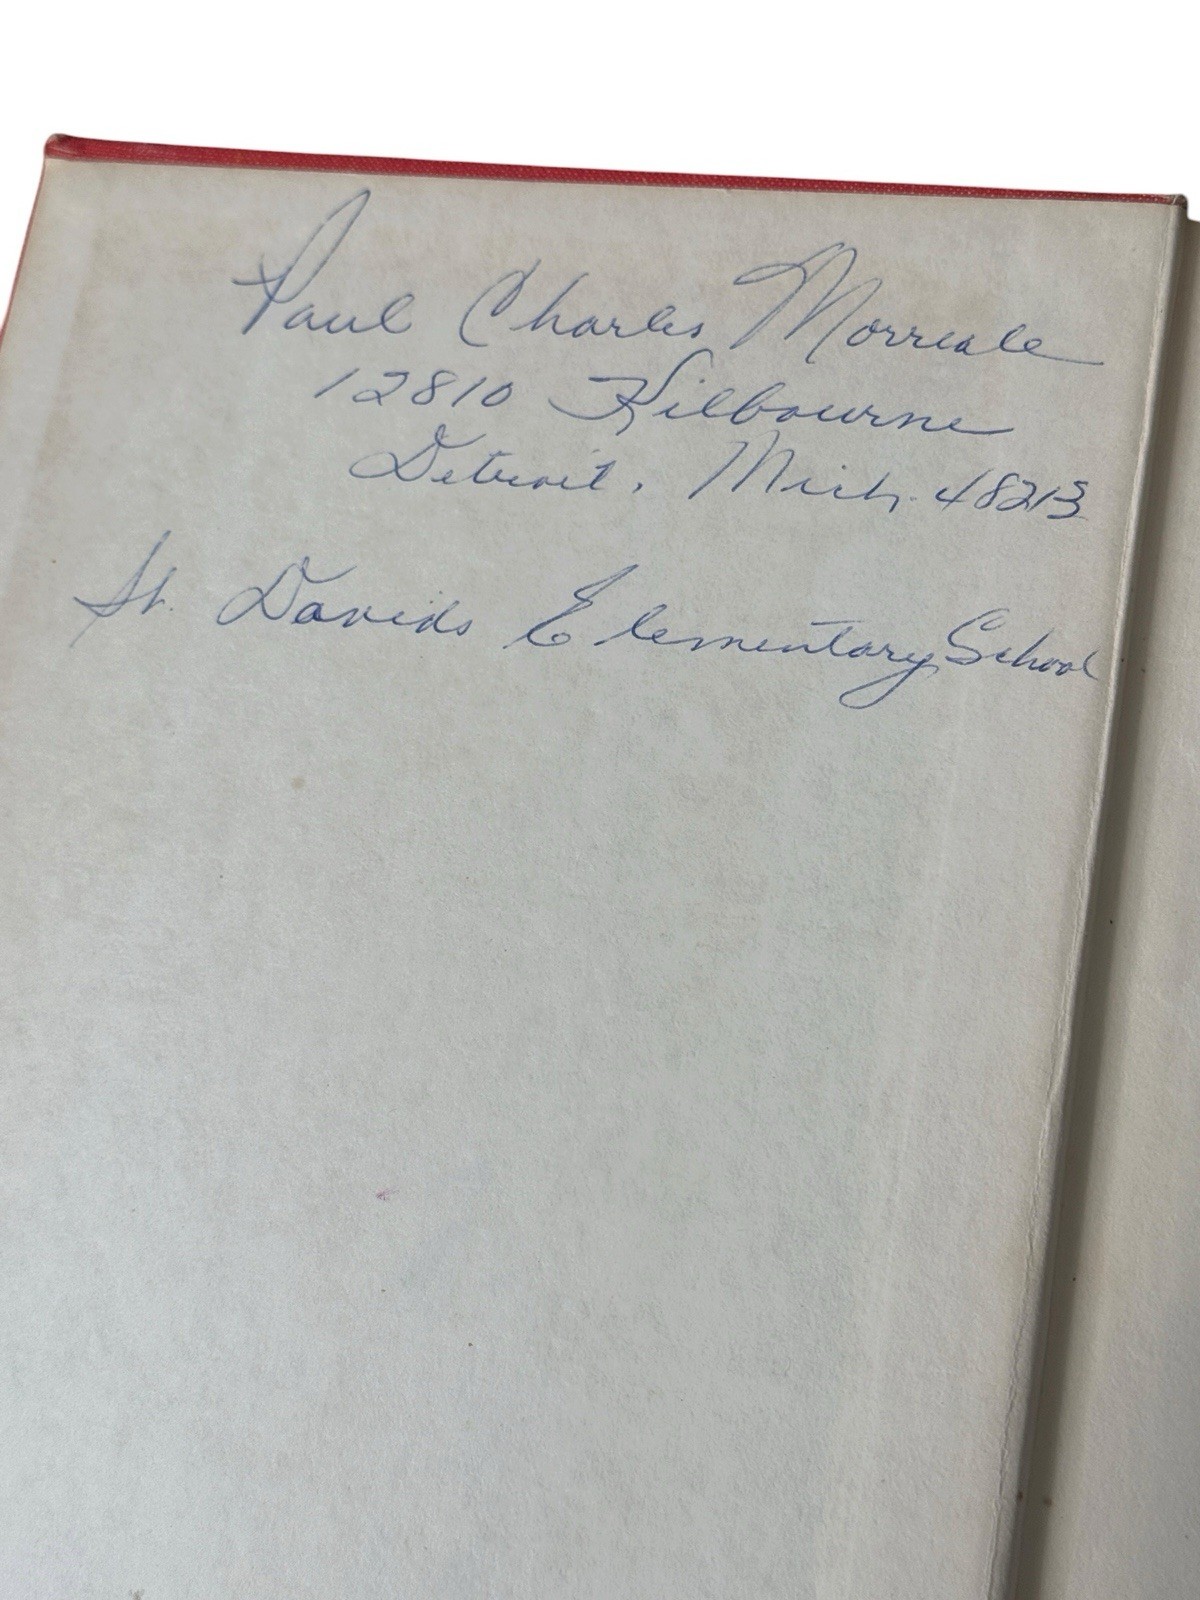 Paul Charles Morreale
12810 Kilbourne
Detroit, Mich. 48213
St. Davids Elementary School